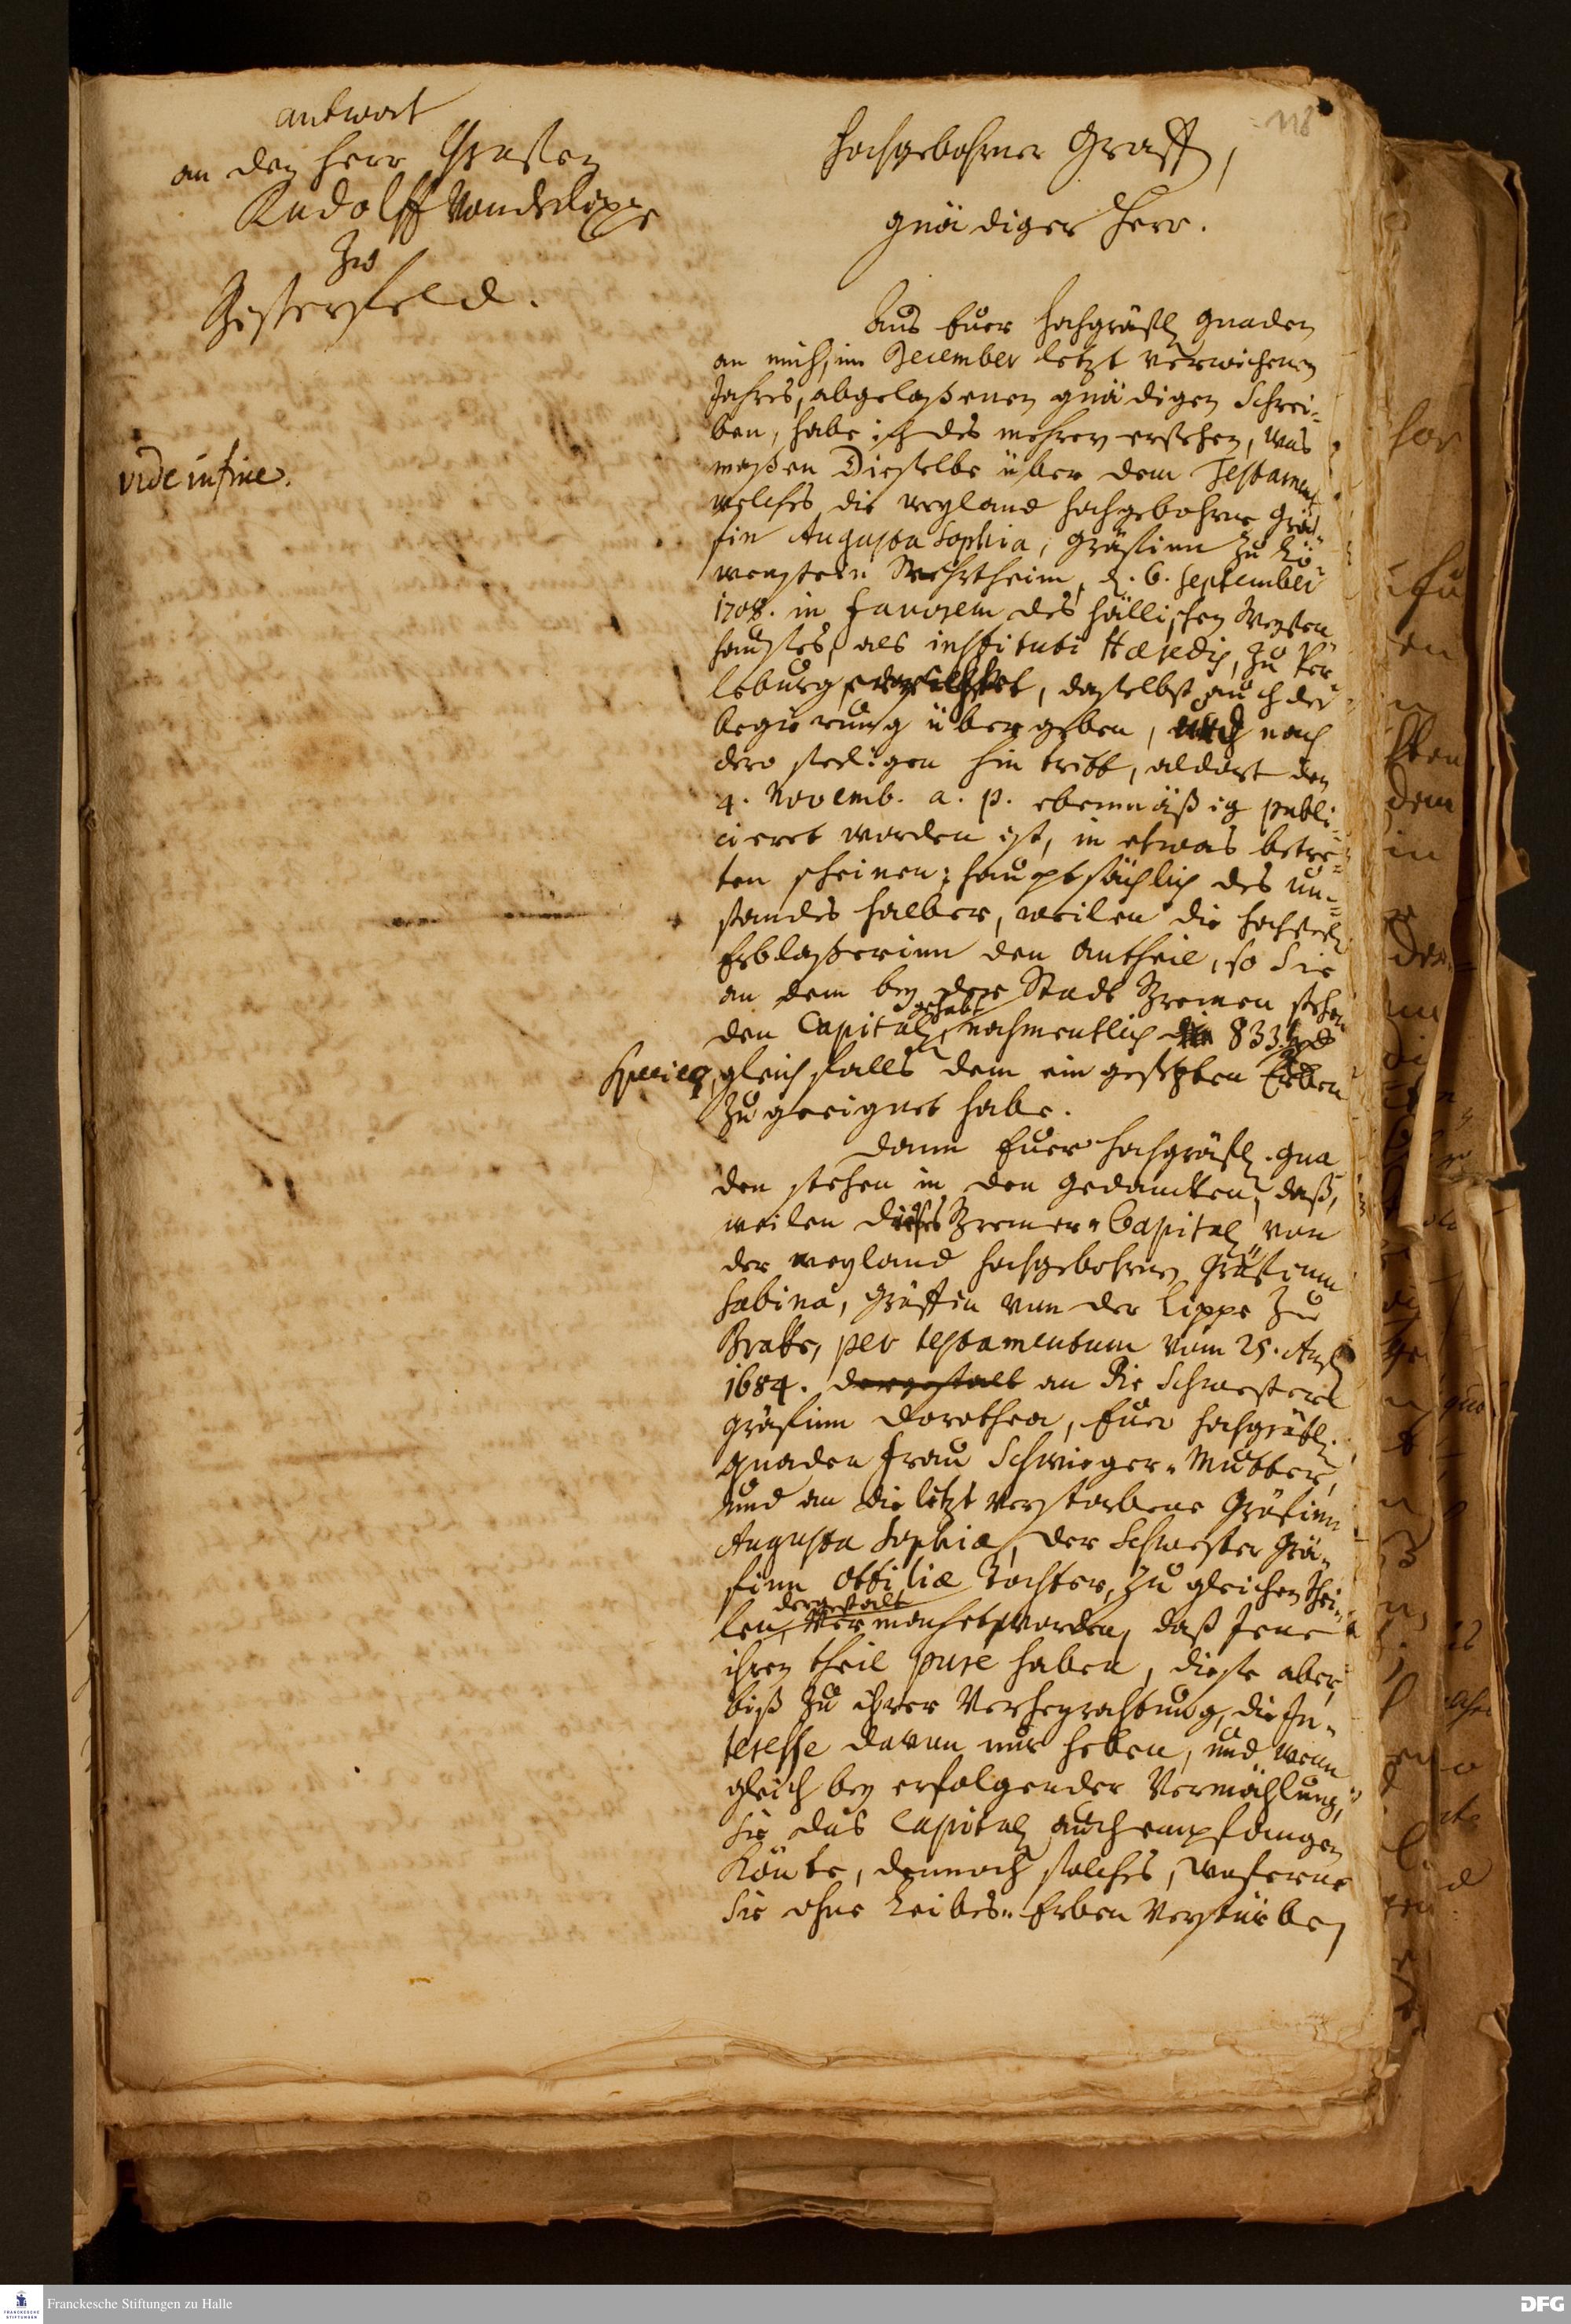 antwort
an den Herr Grafen
Rudolff von der Lippe
zu
Biesterfeld.
vide in fine.
118
Hochgebohrner Graff,
gnädiger Herr.
Aus Euer Hochgräfl. Gnaden
an mich, im December letzt verwichenen
Jahres, abgelaßenen gnädigen Schrei-
ben, habe ich des mehrern ersehen, was
maßen Dieselbe über dem Testament
welches die weyland Hochgebohrne Grä-
fin Augusta Sophia, Gräfinn zu Lö-
wenstein Wehrtheim, d. 6. September
1708. in favorem des hällischen Waysen
hauses, als instituti Hæredis, zu Ber-
leburg, daselbst auch der
Regierung übergeben, nach
dero seeligen hintritt, aldort den
4. Novemb. a. p. ebenmäßig publi-
cieret worden ist, in etwas betre-
ten scheinen; hauptsächlich des um-
standes halber, weilen die hochseel.
Erblaßerinn den Antheil, so Sie
an dem bey der Stadt Bremen stehen
den Capital gehabt, nahmentlich 833
Species, gleichfalls dem eingesetzten Erben
zugeeignet habe.
Dann Euer Hochgräfl. Gna
den stehen in den Gedancken, daß,
weilen dieses Bremer-Capital von
der weyland Hochgebohrnen Gräfinn
Sabina, Gräffin von der Lippe zu
Brake, per testamentum vom 25. Aug.
1684. dergestalt an die Schwester
Gräfinn Dorothea, Euer Hochgräfl.
Gnaden Frau Schwieger-Mutter,
und an die letzt verstorbene Gräfinn
Augusta Sophia, der Schwester Grä-
finn Ottiliæ Tochter, zu gleichen Thei-
len, dergestalt vermachet worden, daß Jene
ihren theil pure haben, diese aber,
biß zu ihrer Verheyrahtung, die In-
teresse davon nur heben, und wenn
gleich bey erfolgender Vermählung,
Sie das Capital auch empfangen
könte, dennoch solches, woferne
Sie ohne Leibes-Erben verstürbe,
Franckesche Stiftungen zu Halle
DFG